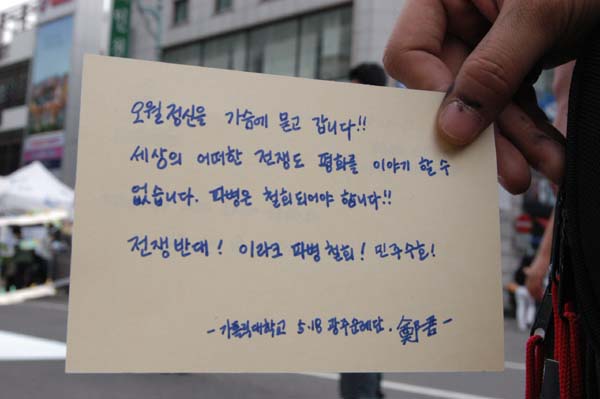 오월정신을 가슴에 묻고 갑니다!!
세상의 어떠한 전쟁도 평화를 이야기 할 수
없습니다. 파병은 철회되어야 합니다!!
전쟁반대! 이라크 파병철회! 민주수호!
- 가톨릭대학교 5.18 광주순례단. 鄭君 -